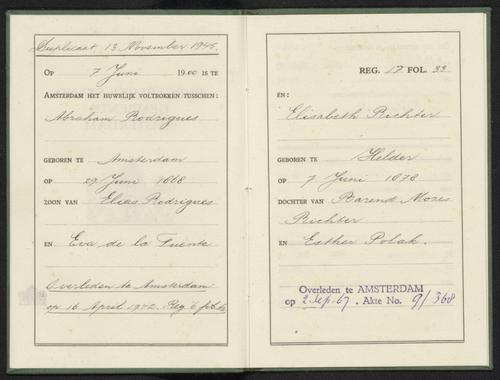 Duplicaat, 13 November 1945.
OP 7 Juni 1900 IS TE
AMSTERDAM HET HUWELIJK VOLTROKKEN TUSSCHEN:
Abraham Rodrigues
GEBOREN TE Amsterdam
OP 29 Juni 1868
ZOON VAN Elias Rodrigues
EN Eva de la Fuente
Overleden te Amsterdam
op 16 April 1942. Reg. 6 fol.
REG. 17 FOL. 33
EN:
Elisabeth Richter
GEBOREN TE Helder
OP 7 Juni 1878
DOCHTER VAN Barend Mozes
Richter
EN Esther Polak.
Overleden te AMSTERDAM
op 2 Sep. 67. Akte No. 9/368